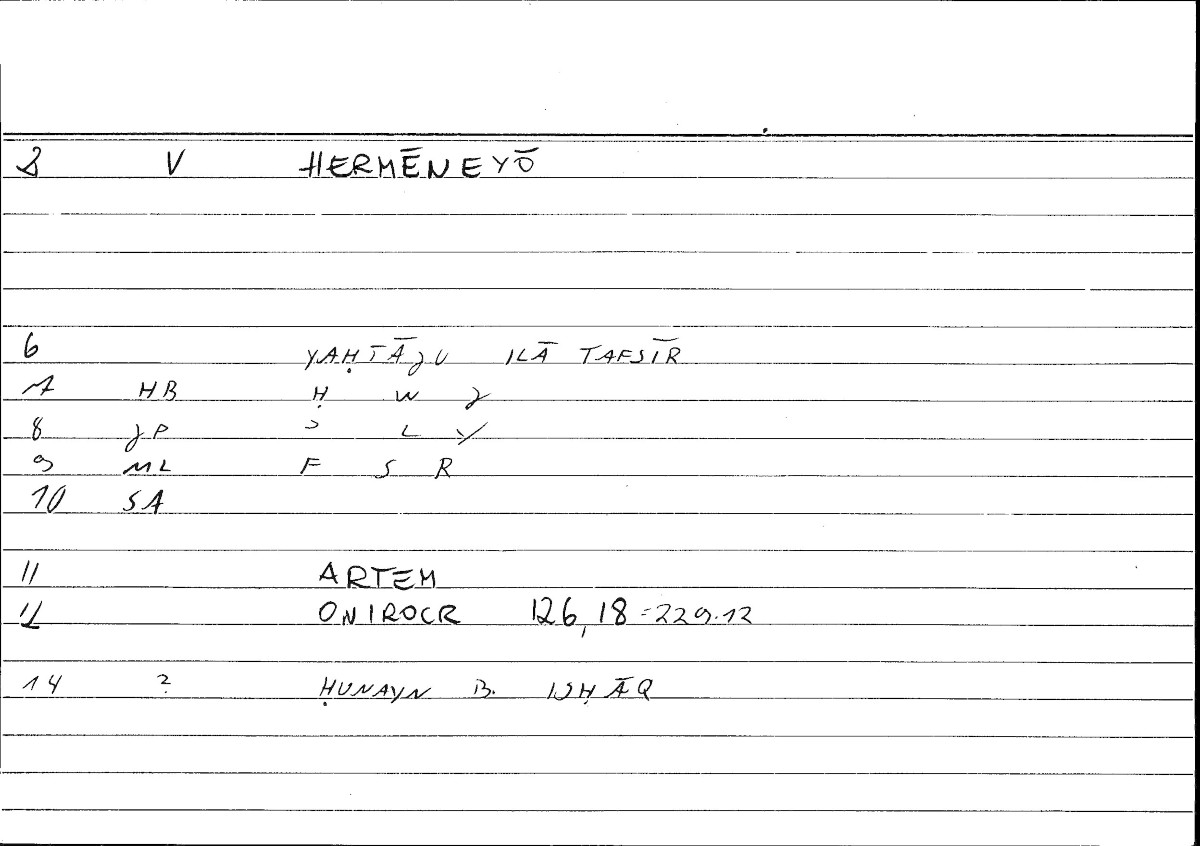 2 V HERMĒNEYŌ
6 YAḤTĀJU ILĀ TAFSĪR
7 HB Ḥ W J
8 JP ʾ L Y
9 ML F S R
10 SA
11 ARTEM
12 ONIROCR 126,18 = 229.12
14 ? ḤUNAYN B. ISḤĀQ